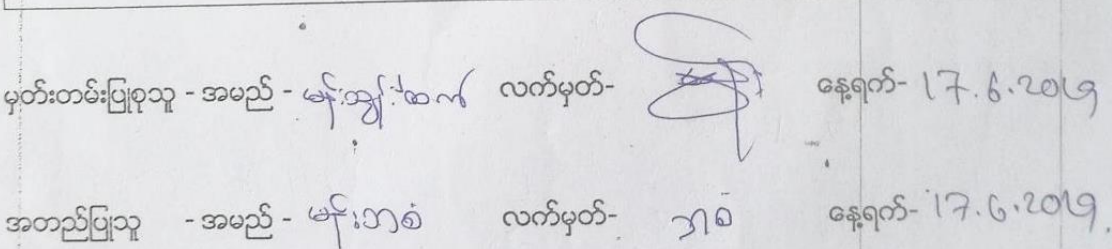 မှတ်းတမ်းပြုစုသူ - အမည် - မန်း လက်မှတ်- နေ့ရက်- 17.6.2019
အတည်ပြုသူ - အမည် - မန်းဘစံ လက်မှတ်- ဘစံ နေ့ရက်- 17.6.2019.